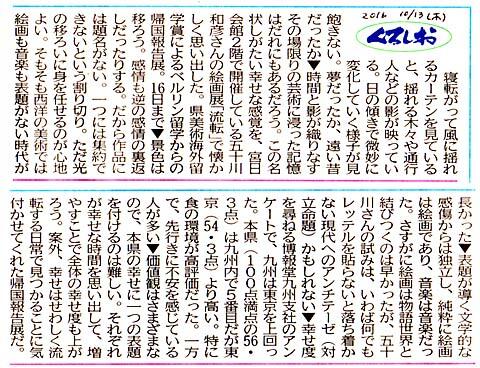 2016 10/13(木)
くろしお
寝転がって風に揺れ
るカーテンを見ている
と、揺れる木々や通行
人などの影が映ってい
る。日の傾きで微妙に
変化していく様子が見
飽きない。夢だったか、遠い昔
だったか▼時間と影が織りなす
その場限りの芸術に浸った記憶
はだれにもあるだろう。この名
状しがたい幸せな感覚を、宮日
会館2階で開催している五十川
和彦さんの絵画展「流転」で懐か
しく思い出した。県美術海外留
学賞によるベルリン留学からの
帰国報告展。16日まで▼景色は
移ろう。感情も逆の感情の裏返
しだったりする。だから作品に
は題名がない。一つには集約で
きないという割り切り。ただ光
の移ろいに身を任せるのが心地
よい。そもそも西洋の美術では
絵画も音楽も表題がない時代が
長かった▼表題が導く文学的な
感傷からは独立し、純粋に絵画
は絵画であり、音楽は音楽だっ
た。さすがに絵画は物語世界と
結びつくのは早かったが、五十
川さんの試みは、いわば何でも
レッテルを貼らないと落ち着か
ない現代へのアンチテーゼ（対
立命題）かもしれない▼幸せ度
を尋ねる博報堂九州支社のアン
ケートで、九州は東京を上回っ
た。本県（100点満点の56・
3点）は九州内で5番目だが東
京（54・3点）より高い。特に
食の環境が高評価だった。一方
で、先行きに不安を感じている
人が多い▼価値観はさまざまな
ので、本県の幸せに一つの表題
を付けるのは難しい。それぞれ
が幸せな時間を思い出して、増
やすことで全体の幸せ度も上が
ろう。案外、幸せはせわしく流
転する日常で見つかることに気
付かせてくれた帰国報告展だ。